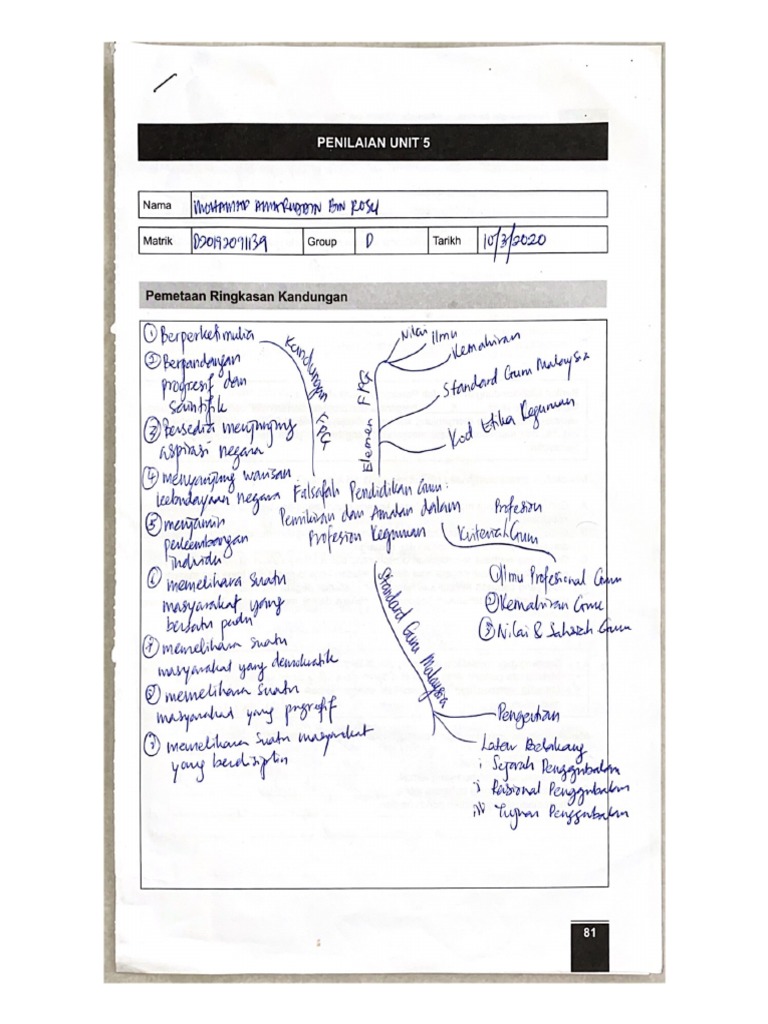 PENILAIAN UNIT 5
Nama MOHAMAD AMARUDDIN BIN ROSLI
Matrik D20192091139 Group D Tarikh 10/3/2020
Pemetaan Ringkasan Kandungan
Kandungan FPG
① Berperkerti mulia
② Berpandangan
progresif dan
saintifik
③ Bersedia menjunjung
aspirasi negara
④ menyanjung warisan
kebudayaan negara
⑤ menjamin
perkembangan
individu
⑥ memelihara suatu
masyarakat yang
bersatu padu
⑦ memelihara suatu
masyarakat yang demokratik
⑧ memelihara suatu
masyarakat yang progresif
⑨ memelihara suatu masyarakat
yang berdisiplin
Elemen FPG
Nilai
Ilmu
Kemahiran
Standard Guru Malaysia
Kod Etika Keguruan
Falsafah Pendidikan Guru:
Pemikiran dan Amalan dalam
Profesion Keguruan
Profesion
Kriteria Guru
① Ilmu Profesional Guru
② Kemahiran Guru
③ Nilai & Sahsiah Guru
Standard Guru Malaysia
Pengertian
Latar Belakang
i Sejarah Penggubalan
ii Rasional Penggubalan
iii Tujuan Penggubalan
81